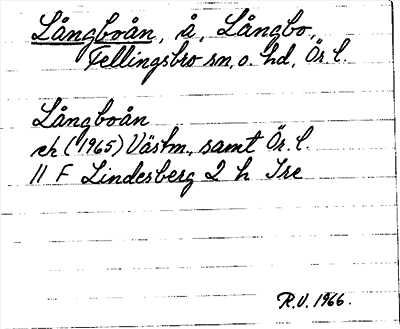 Långboån, å, Långbo,
Fellingsbro sn, o. hd, Ör l.
Långboån
ek (1965) Västm., samt Ör. l.
11 F Lindesberg 2 h Tre
R.V. 1966.